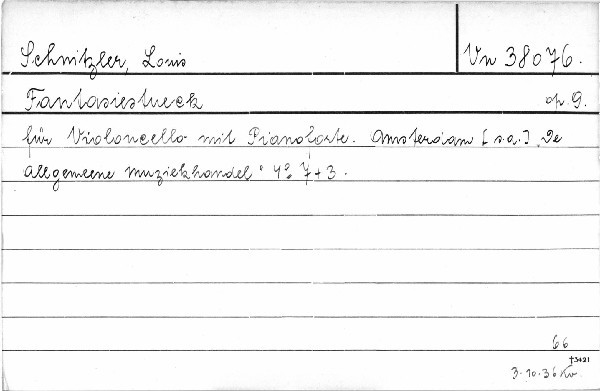 Schnitzler, Louis
Vn 38076.
Fantasiestueck op. 9.
für Violoncello mit Pianoforte. Amsterdam [s.a.] „De
allgemeene muziekhandel“ 4° 7+3.
66
†3421
3.10.36 Kv.